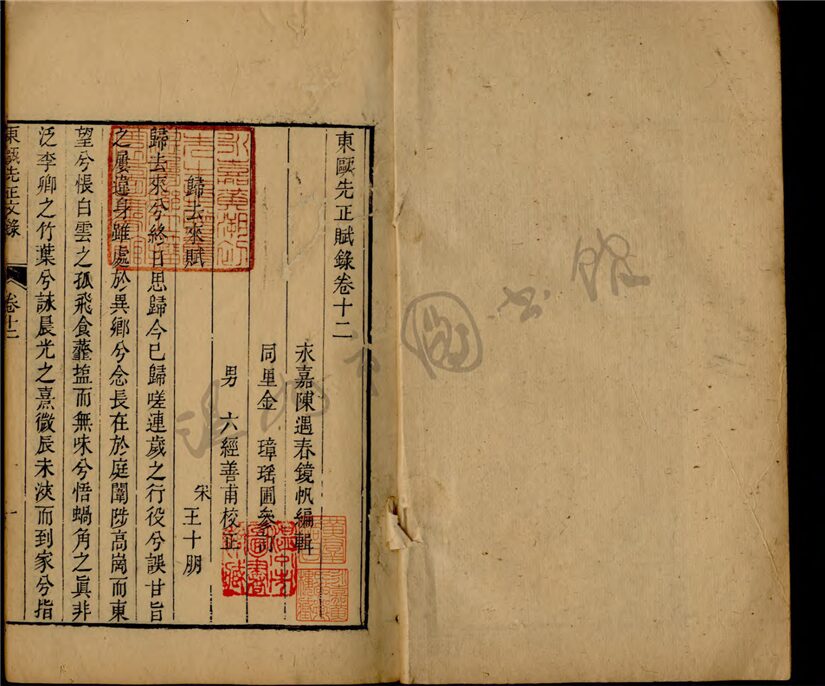 東甌先正賦錄卷十二
永嘉陳遇春鏡帆編輯
同里金　璋瑤圃參訂
男　六經善甫校正
歸去來賦
宋　王十朋
歸去來兮終日思歸今已歸嗟連歲之行役兮誤甘旨
之屢違身雖處於異鄉兮念長在於庭闈陟高崗而東
望兮悵白雲之孤飛食虀塩而無味兮悟蝸角之眞非
泛李卿之竹葉兮誺晨光之熹微辰未浹而到家兮指
東甌先正文錄
卷十二
一
溫州市圖書館